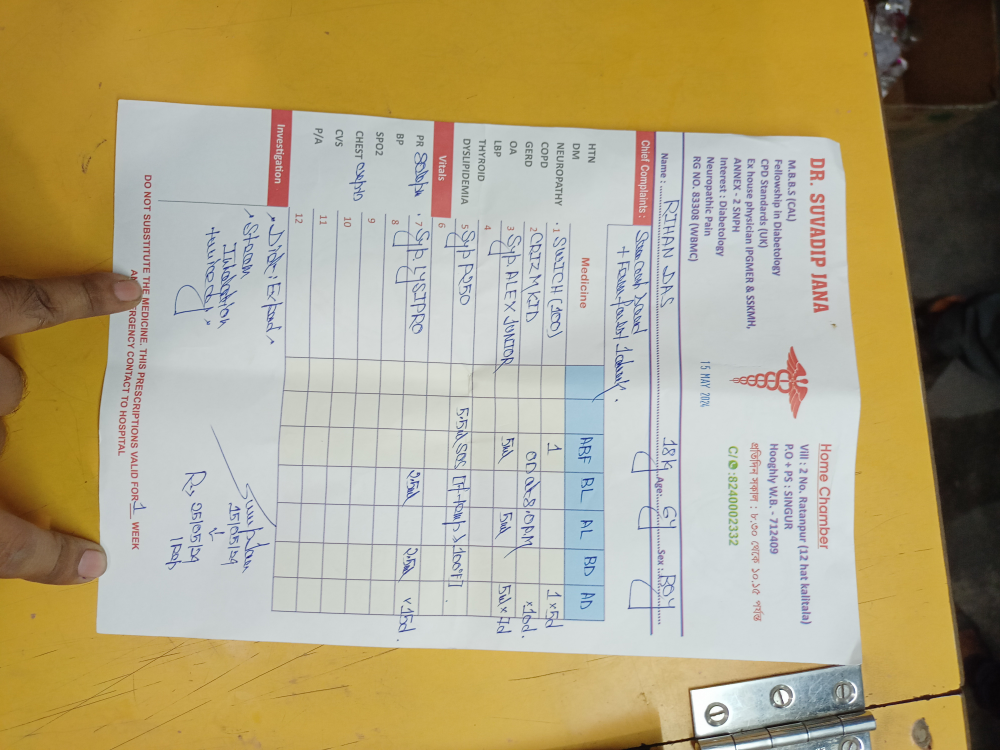 DR. SUVADIP JANA
M.B.B.S (CAL)
Fellowship in Diabetology
CPD Standards (UK)
Ex house physician IPGMER & SSKMH,
ANNEX - 2 SNPH
Interest : Diabetology
Neuropathic Pain
RG NO. 83308 (WBMC)
15 MAY 2024
Home Chamber
Vill : 2 No. Ratanpur (12 hat kalitala)
P.O + PS : SINGUR
Hooghly W.B. - 712409
প্রতিদিন সকাল : ৮.৩০ থেকে ১০.১৫ পর্যন্ত
C/ :8240002332
Name : RIHAN DAS 18K Age: 6Y Sex : BOY
Chief Complaints :
HTN
DM
NEUROPATHY
COPD
GERD
OA
LBP
THYROID
DYSLIPIDEMIA
Vitals
PR
BP
SPO2
CHEST
CVS
P/A
Medicine ABF BL AL BD AD
1 SWICH (100) 1 1 x 5d
2 CRIZ M KID OD at 8.0 PM x 10d.
3 Syp ALEX JUNIOR 5ml 5ml 5ml x 7d
4
5 Syp P250 5.5ml SOS [T-temp > 100°F]
6
7 Syp LYSIPRO 2.5ml 2.5ml x 15d.
8
9
10
11
12
Investigation
Steam
15/05/24
25/05/24
DO NOT SUBSTITUTE THE MEDICINE. THIS PRESCRIPTIONS VALID FOR 1 WEEK
EMERGENCY CONTACT TO HOSPITAL